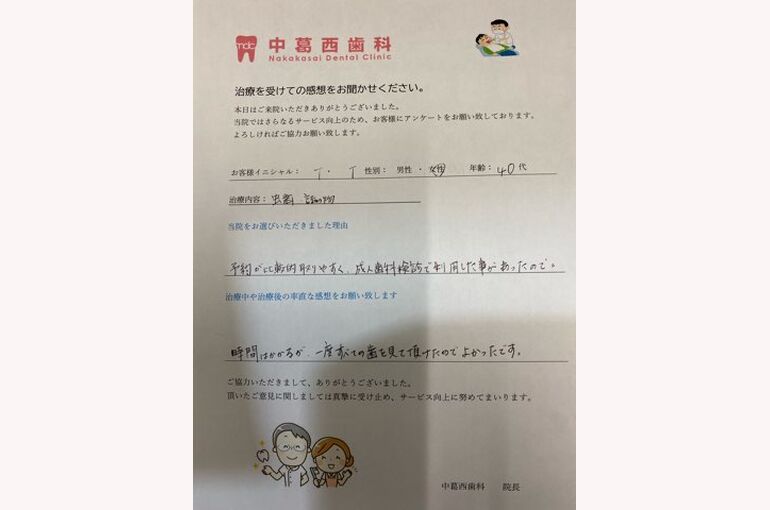 tndc
中葛西歯科
Nakakasai Dental Clinic
治療を受けての感想をお聞かせください。
本日はご来院いただきありがとうございました。
当院ではさらなるサービス向上のため、お客様にアンケートをお願い致しております。
よろしければご協力お願い致します。
お客様イニシャル： T・T 性別： 男性 ・ 女性 年齢：40代
治療内容：虫歯 詰め物
当院をお選びいただきました理由
予約が比較的取りやすく、成人歯科検診で利用した事があったので。
治療中や治療後の率直な感想をお願い致します
時間はかかるが、一度すべての歯を見て頂けたのでよかったです。
ご協力いただきまして、ありがとうございました。
頂いたご意見に関しましては真摯に受け止め、サービス向上に努めてまいります。
中葛西歯科 院長